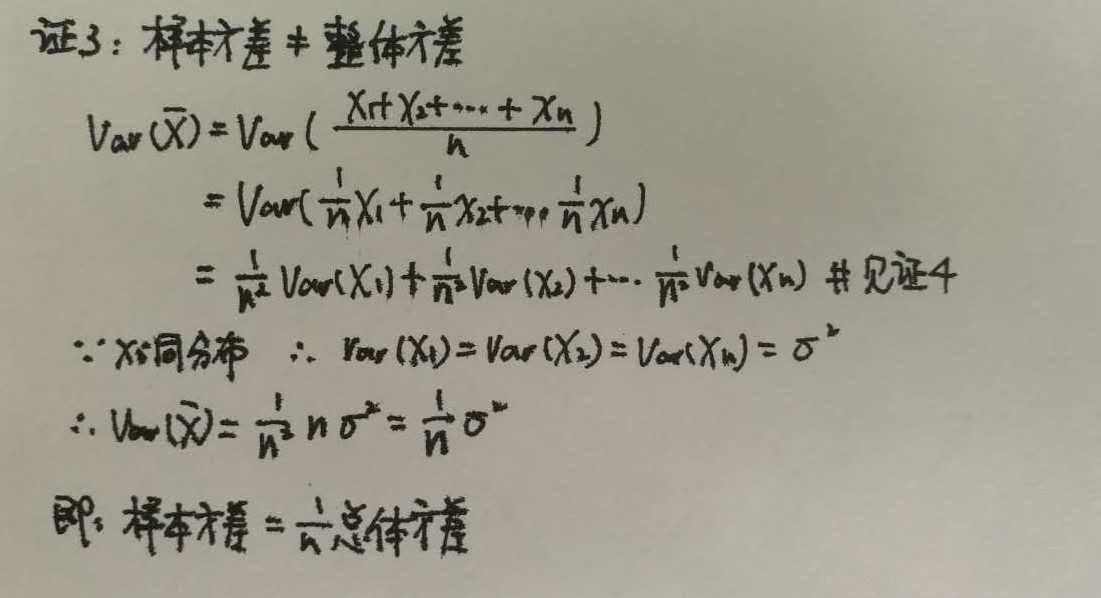 证3：样本方差 ≠ 整体方差
Var(X̄) = Var( (X₁+X₂+····+Xn)/n )
= Var( 1/n X₁ + 1/n X₂+···· 1/n Xn)
= 1/n² Var(X₁) + 1/n² Var(X₂) +···· 1/n² Var(Xn) # 见证4
∵ Xi同分布 ∴ Var(X₁) = Var(X₂) = Var(Xn) = σ²
∴ Var(X̄) = 1/n² n σ² = 1/n σ²
即：样本方差 = 1/n 总体方差